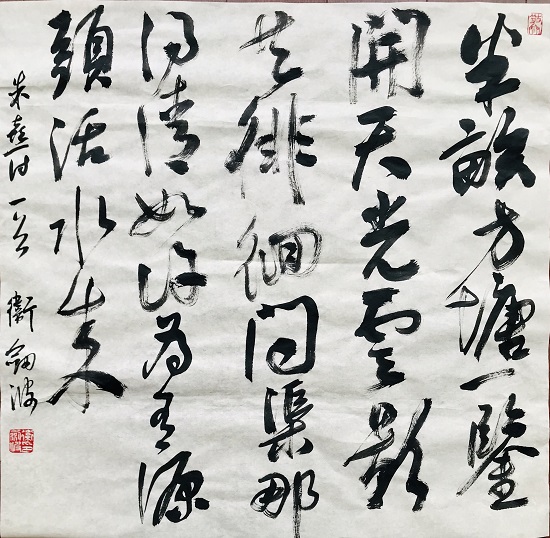 半畝方塘一鑒
開天光雲影
共徘徊問渠那
得清如許為有源
頭活水來
朱熹詩一首 衛劍波